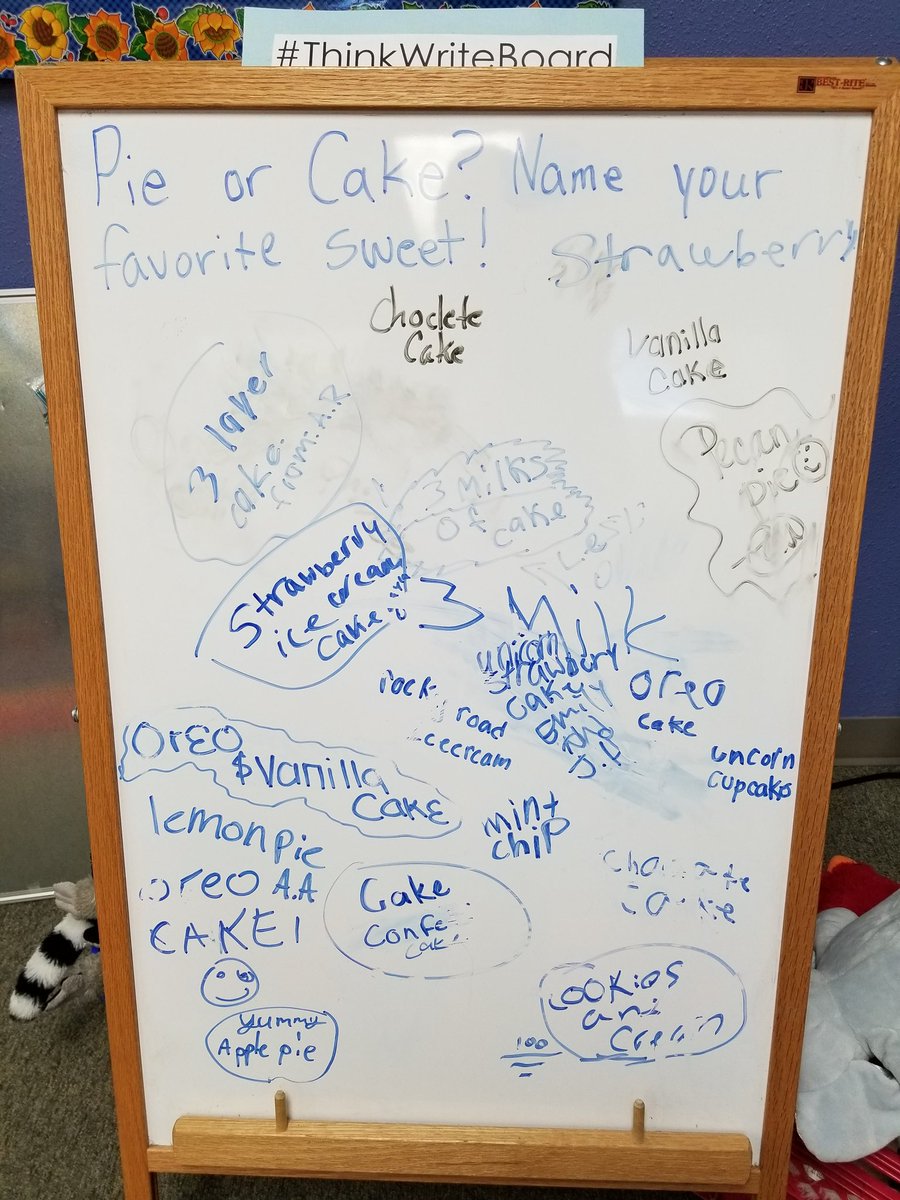 #ThinkWriteBoard
BEST-RITE
Pie or Cake? Name your
favorite sweet!
Strawberry
Choclete
Cake
Vanilla
Cake
3 layer
cake
from: A.R
Pecan
pie
3 Milks
of cake
Strawberry
ice cream
cake
3 Milk
strawberry
cake
rock
road
icecream
oreo
cake
uncorn
cupcake
OrEO
$Vanilla
CakE
lemon pie
mint
chip
oreo A.A
CAKE!
Cake
Confe
cake
yummy
Apple pie
cookies
and
cream
100